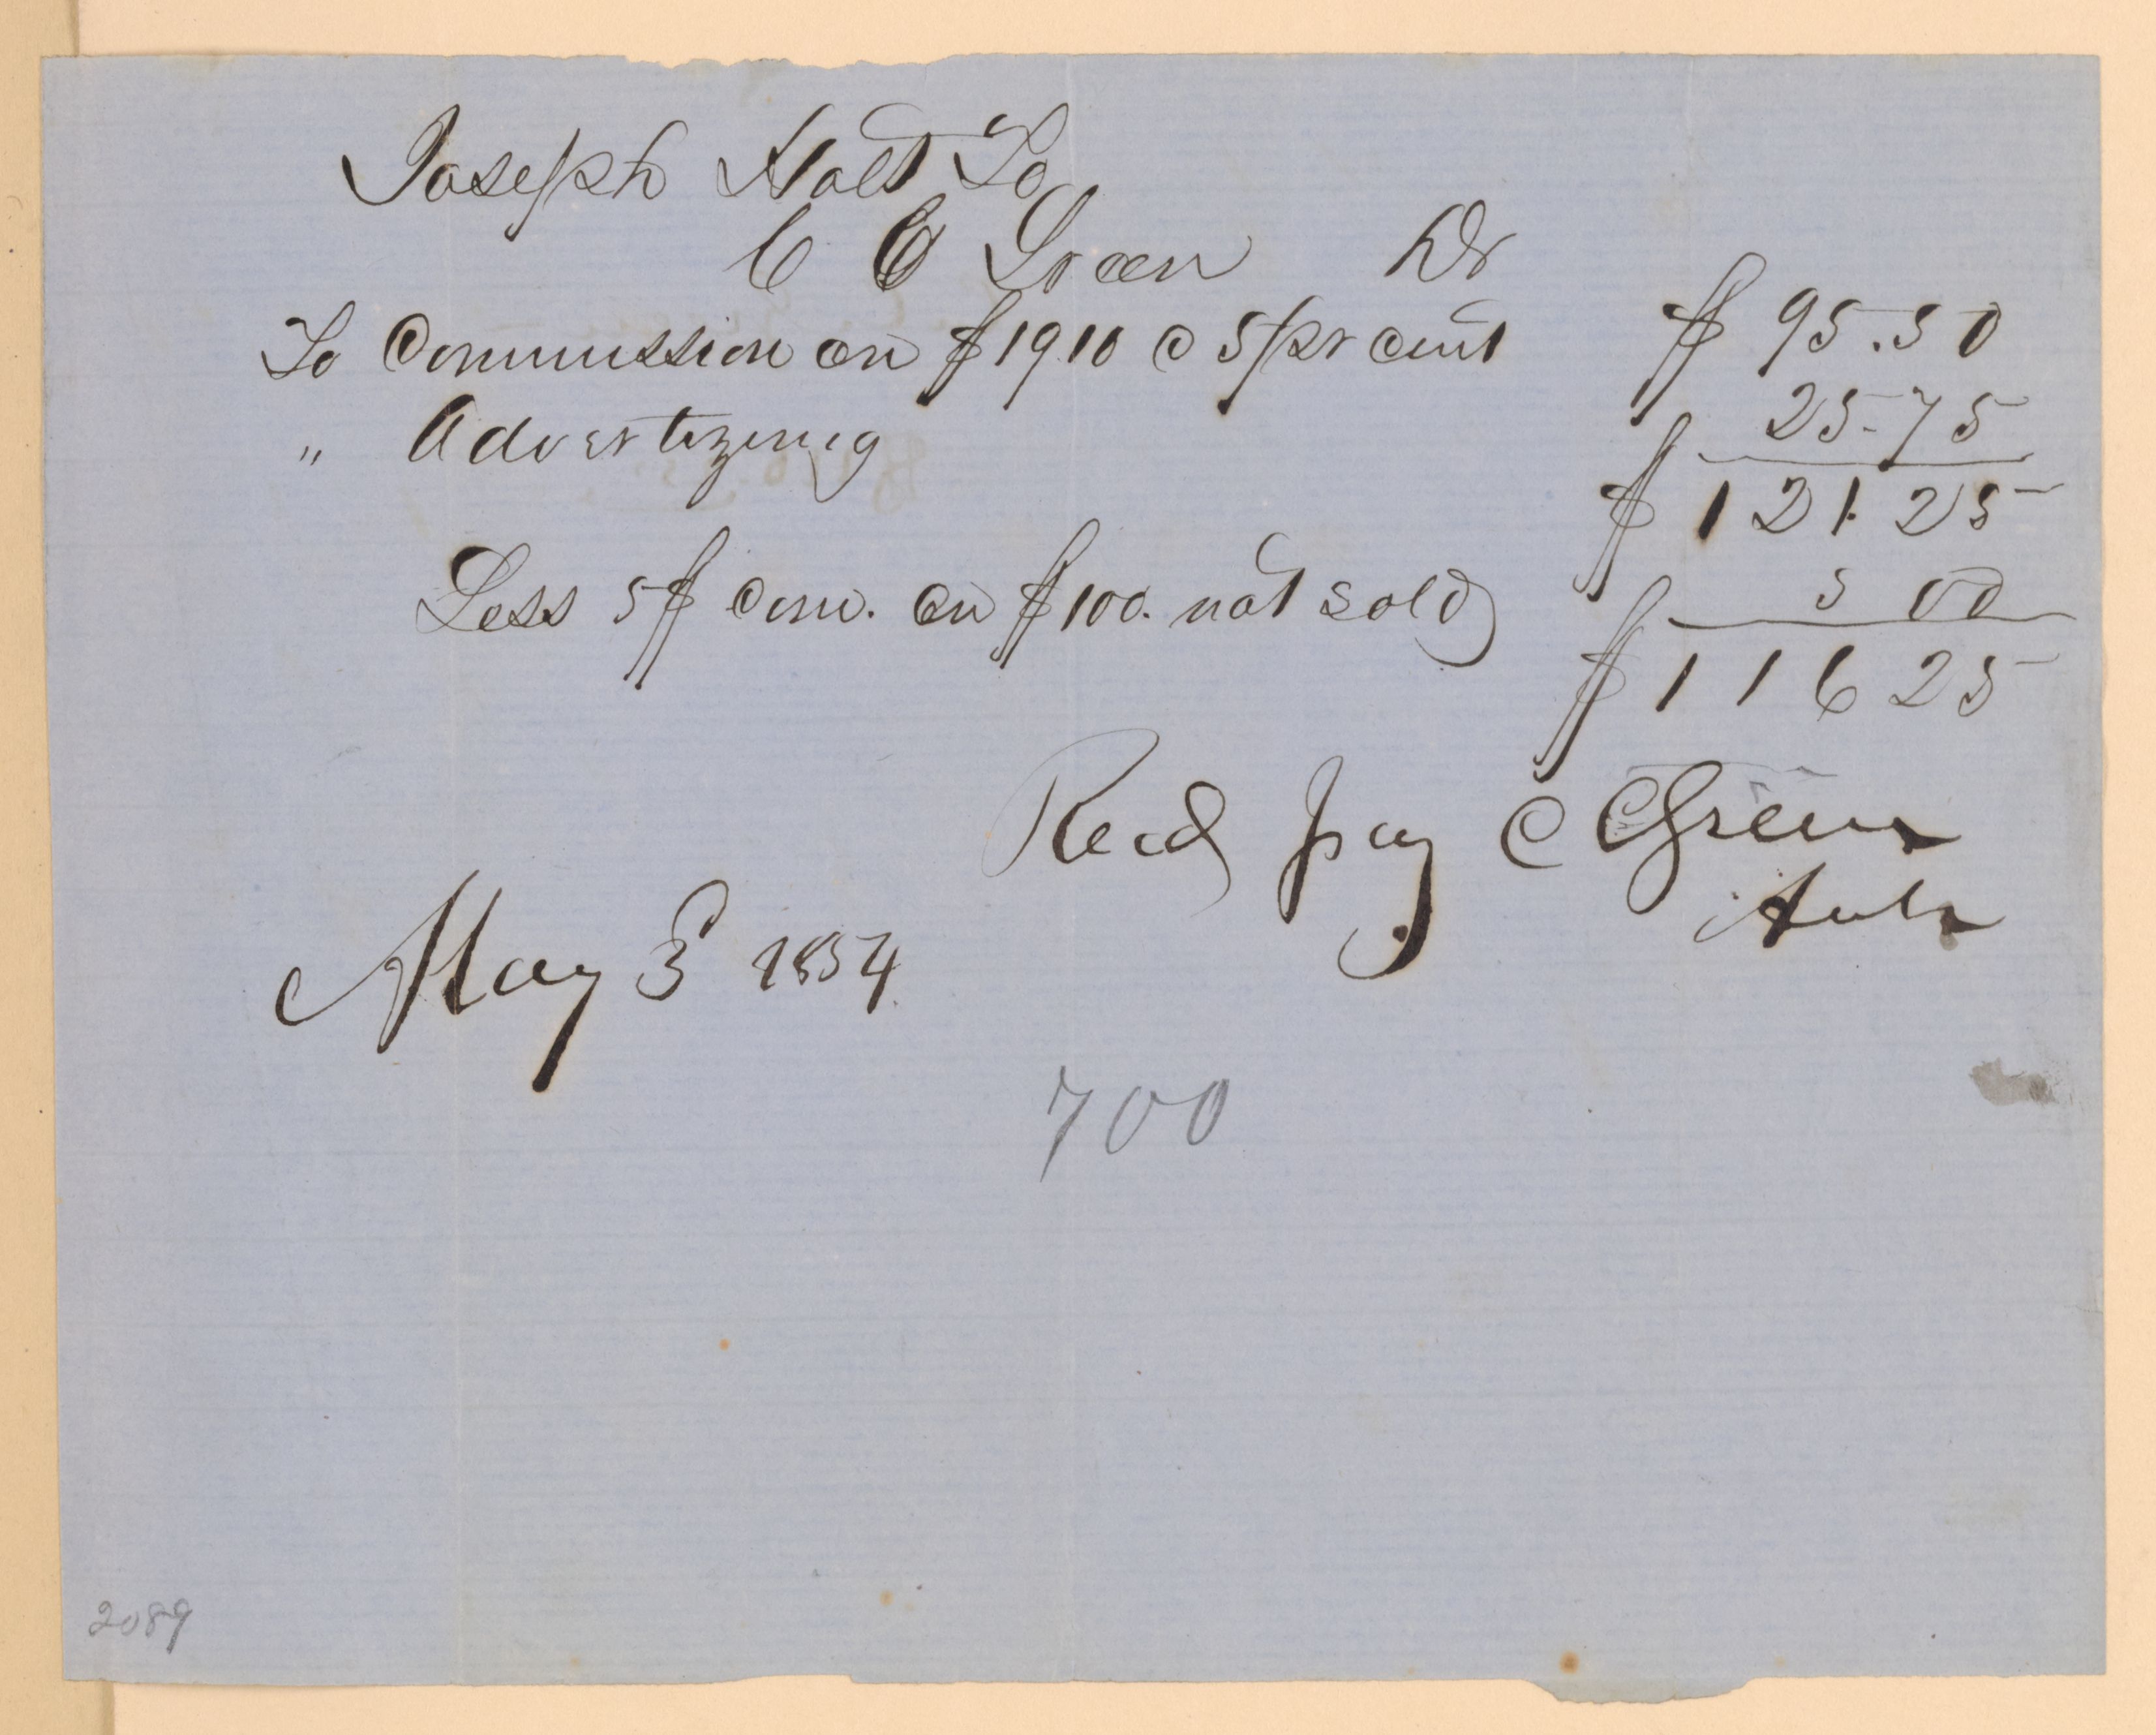 Joseph Holt To
C C Green Dr
To Commission on $1910 @ 5 pr cent $95.50
" Advertizing 25-75
$121.25
Less 5$ com. on $100. not sold 5 00
$116 25
Recd pay C C Green
May 3 1854
700
2089